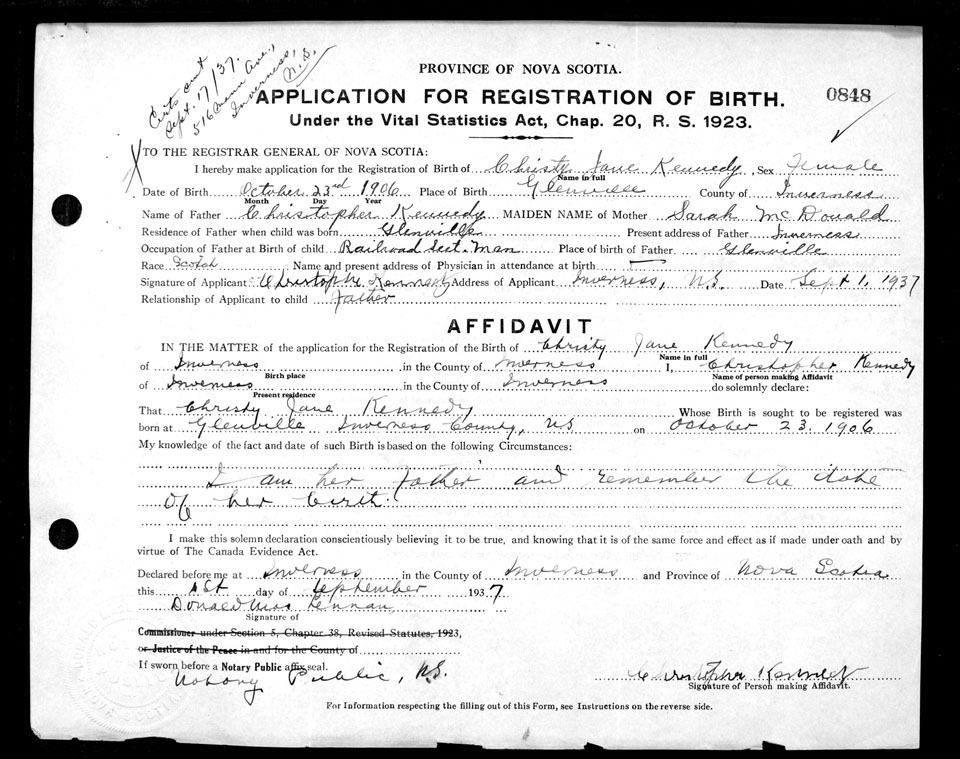 Certs sent
Sept. 17/37.
516 Ave.,
Inverness,
N.S.
PROVINCE OF NOVA SCOTIA.
APPLICATION FOR REGISTRATION OF BIRTH.
0848
Under the Vital Statistics Act, Chap. 20, R. S. 1923.
TO THE REGISTRAR GENERAL OF NOVA SCOTIA:
I hereby make application for the Registration of Birth of Christy Jane Kennedy, Sex Female
Name in full
Date of Birth October 23rd 1906 Place of Birth Glenville County of Inverness
Month Day Year
Name of Father Christopher Kennedy MAIDEN NAME of Mother Sarah McDonald
Residence of Father when child was born Glenville Present address of Father Inverness
Occupation of Father at Birth of child Railroad Sect. Man Place of birth of Father Glenville
Race Scotch Name and present address of Physician in attendance at birth
Signature of Applicant Christopher Kennedy Address of Applicant Inverness, N.S. Date Sept 1, 1937
Relationship of Applicant to child Father
AFFIDAVIT
IN THE MATTER of the application for the Registration of the Birth of Christy Jane Kennedy
Name in full
of Inverness in the County of Inverness I, Christopher Kennedy
Birth place Name of person making Affidavit
of Inverness in the County of Inverness do solemnly declare:
Present residence
That Christy Jane Kennedy Whose Birth is sought to be registered was
born at Glenville Inverness County, NS on October 23. 1906
My knowledge of the fact and date of such Birth is based on the following Circumstances:
I am her Father and remember the date
of her birth.
I make this solemn declaration conscientiously believing it to be true, and knowing that it is of the same force and effect as if made under oath and by
virtue of The Canada Evidence Act.
Declared before me at Inverness in the County of Inverness and Province of Nova Scotia
this 1st day of September 1937
Donald MacLennan
Signature of
Commissioner under Section 5, Chapter 38, Revised Statutes, 1923,
or Justice of the Peace in and for the County of
If sworn before a Notary Public affix seal.
Notary Public, N.S.
Christopher Kennedy
Signature of Person making Affidavit.
For Information respecting the filling out of this Form, see Instructions on the reverse side.